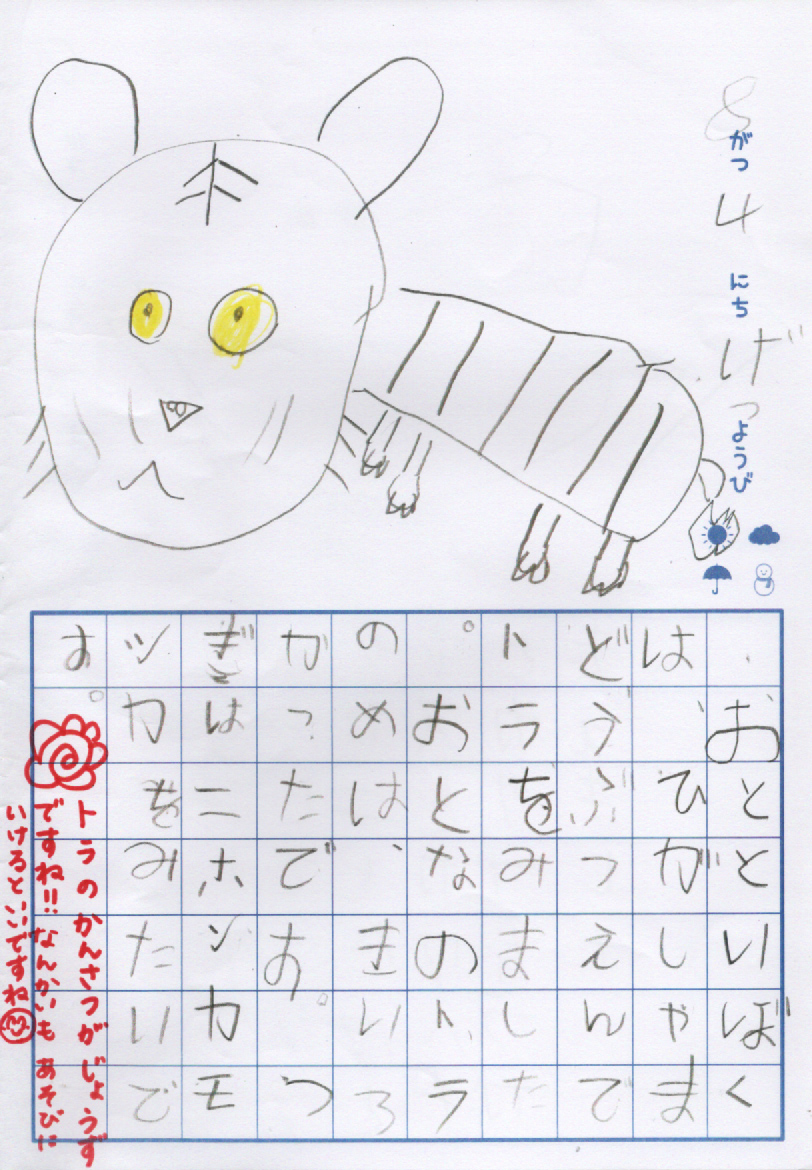 8がつ4にちげつようび
おとといぼく
は、ひがしやま
どうぶつえんで
トラをみました
。おとなのトラ
のめは、きいろ
かったです。つ
ぎはニホンカモ
シカをみたいで
す。
トラのかんさつがじょうず
ですね!!なんかいもあそびに
いけるといいですね